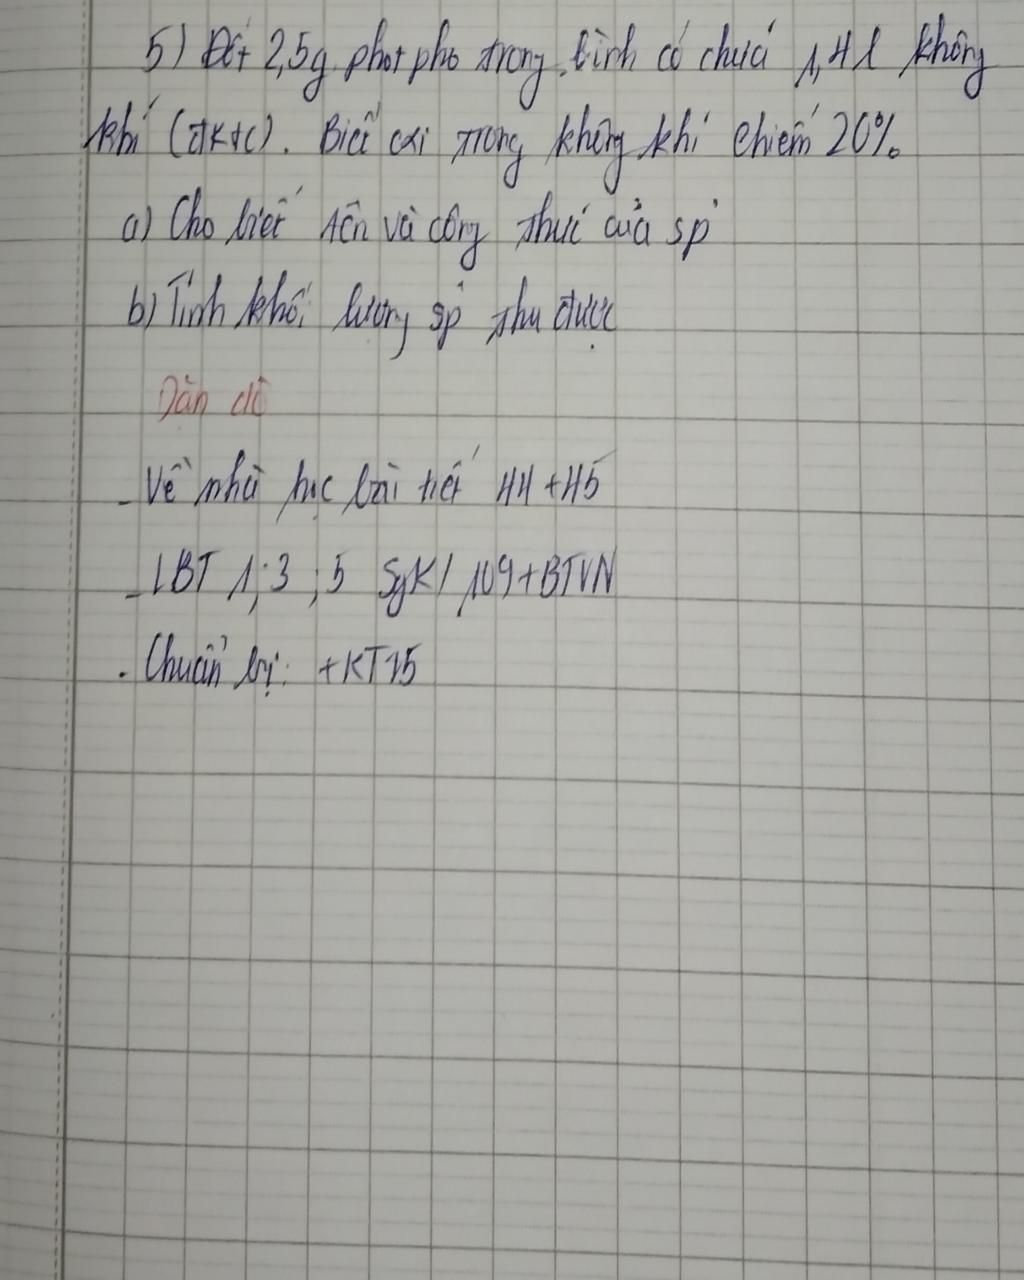 5) Đốt 2,5g photpho trong bình có chứa 1,4l không
khí (đktc). Biết oxi trong không khí chiếm 20%
a) Cho biết tên và công thức của sp
b) Tính khối lượng sp thu được
Dặn dò
- Về nhà học bài tiết 44+45
- LBT 1; 3; 5 SgK/109+BTVN
- Chuẩn bị: +KT15